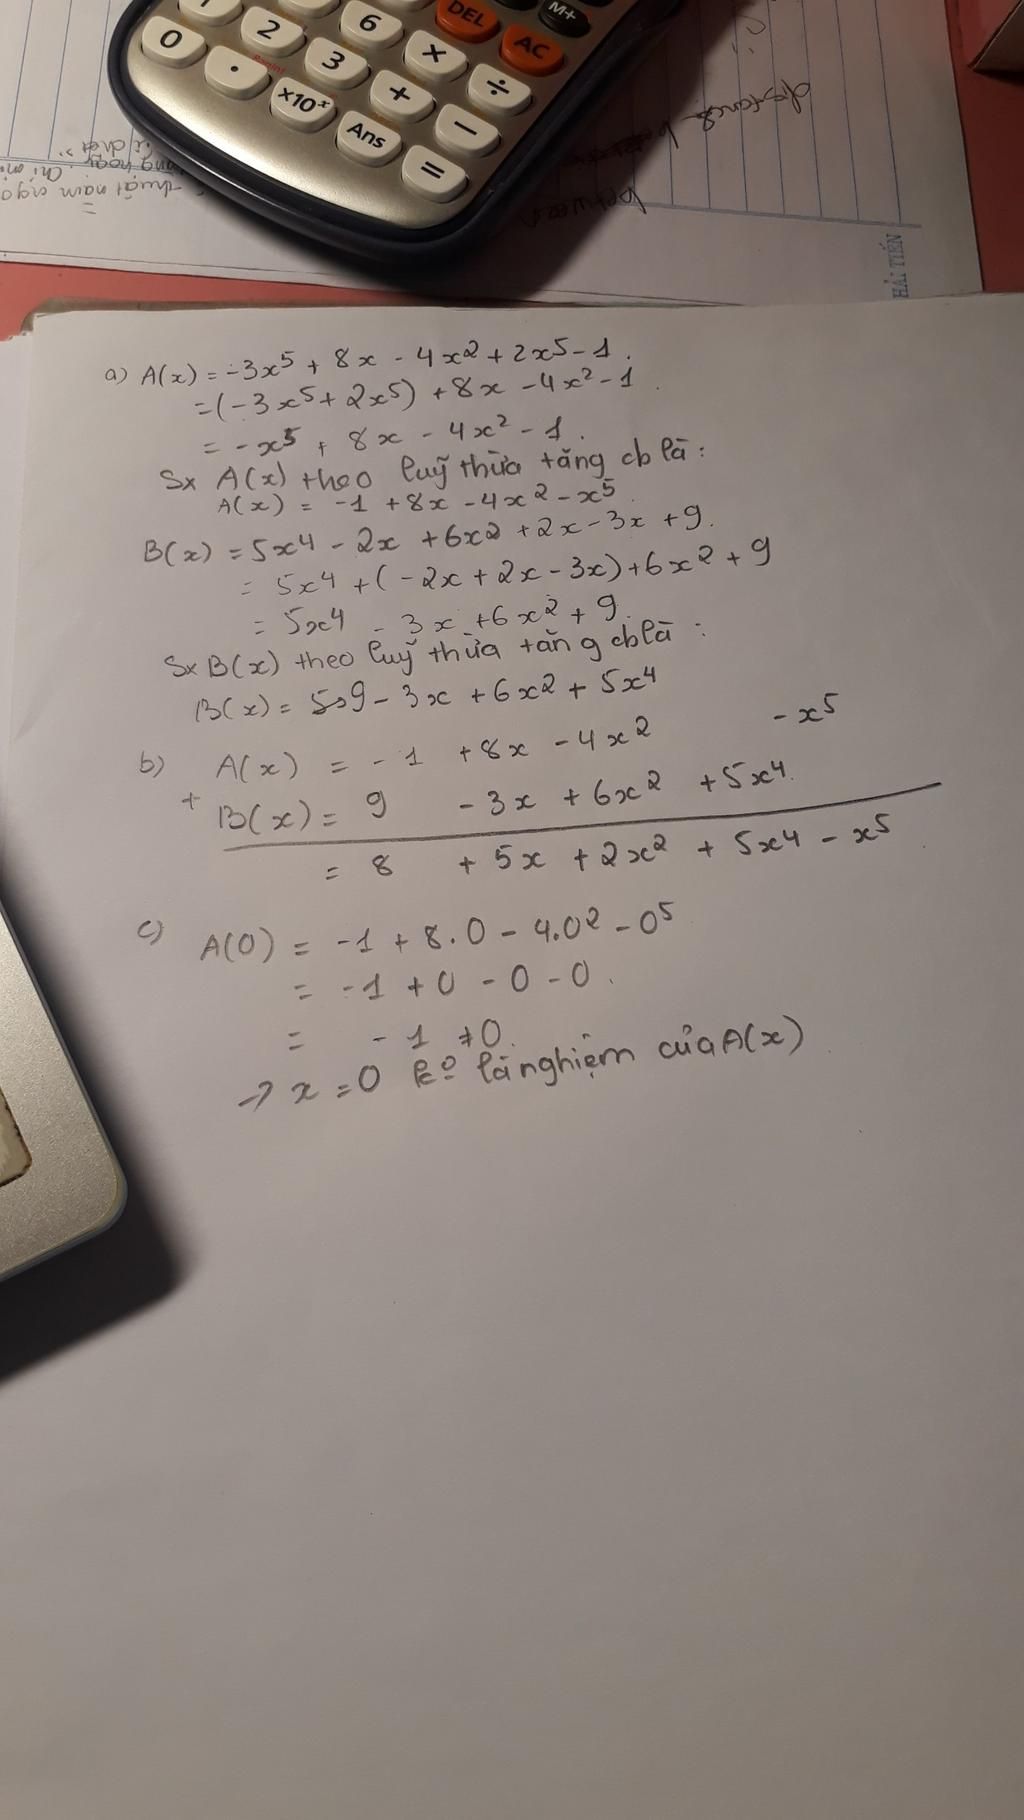 1
2
6
DEL
M+
0
.
3
×
AC
Ranint
×10ˣ
+
÷
Ans
−
=
distance
between
HẢI TIẾN
a) A(x) = -3x⁵ + 8x - 4x² + 2x⁵ - 1.
= (-3x⁵ + 2x⁵) + 8x - 4x² - 1.
= -x⁵ + 8x - 4x² - 1.
Sx A(x) theo luỹ thừa tăng cb là :
A(x) = -1 + 8x - 4x² - x⁵.
B(x) = 5x⁴ - 2x + 6x² + 2x - 3x + 9.
= 5x⁴ + (-2x + 2x - 3x) + 6x² + 9
= 5x⁴ - 3x + 6x² + 9.
Sx B(x) theo luỹ thừa tăng cb là :
B(x) = 9 - 3x + 6x² + 5x⁴
b) A(x) = -1 + 8x - 4x² - x⁵
+ B(x) = 9 - 3x + 6x² + 5x⁴.
= 8 + 5x + 2x² + 5x⁴ - x⁵
c) A(0) = -1 + 8.0 - 4.0² - 0⁵
= -1 + 0 - 0 - 0.
= -1 ≠ 0.
→ x = 0 k° là nghiệm của A(x)